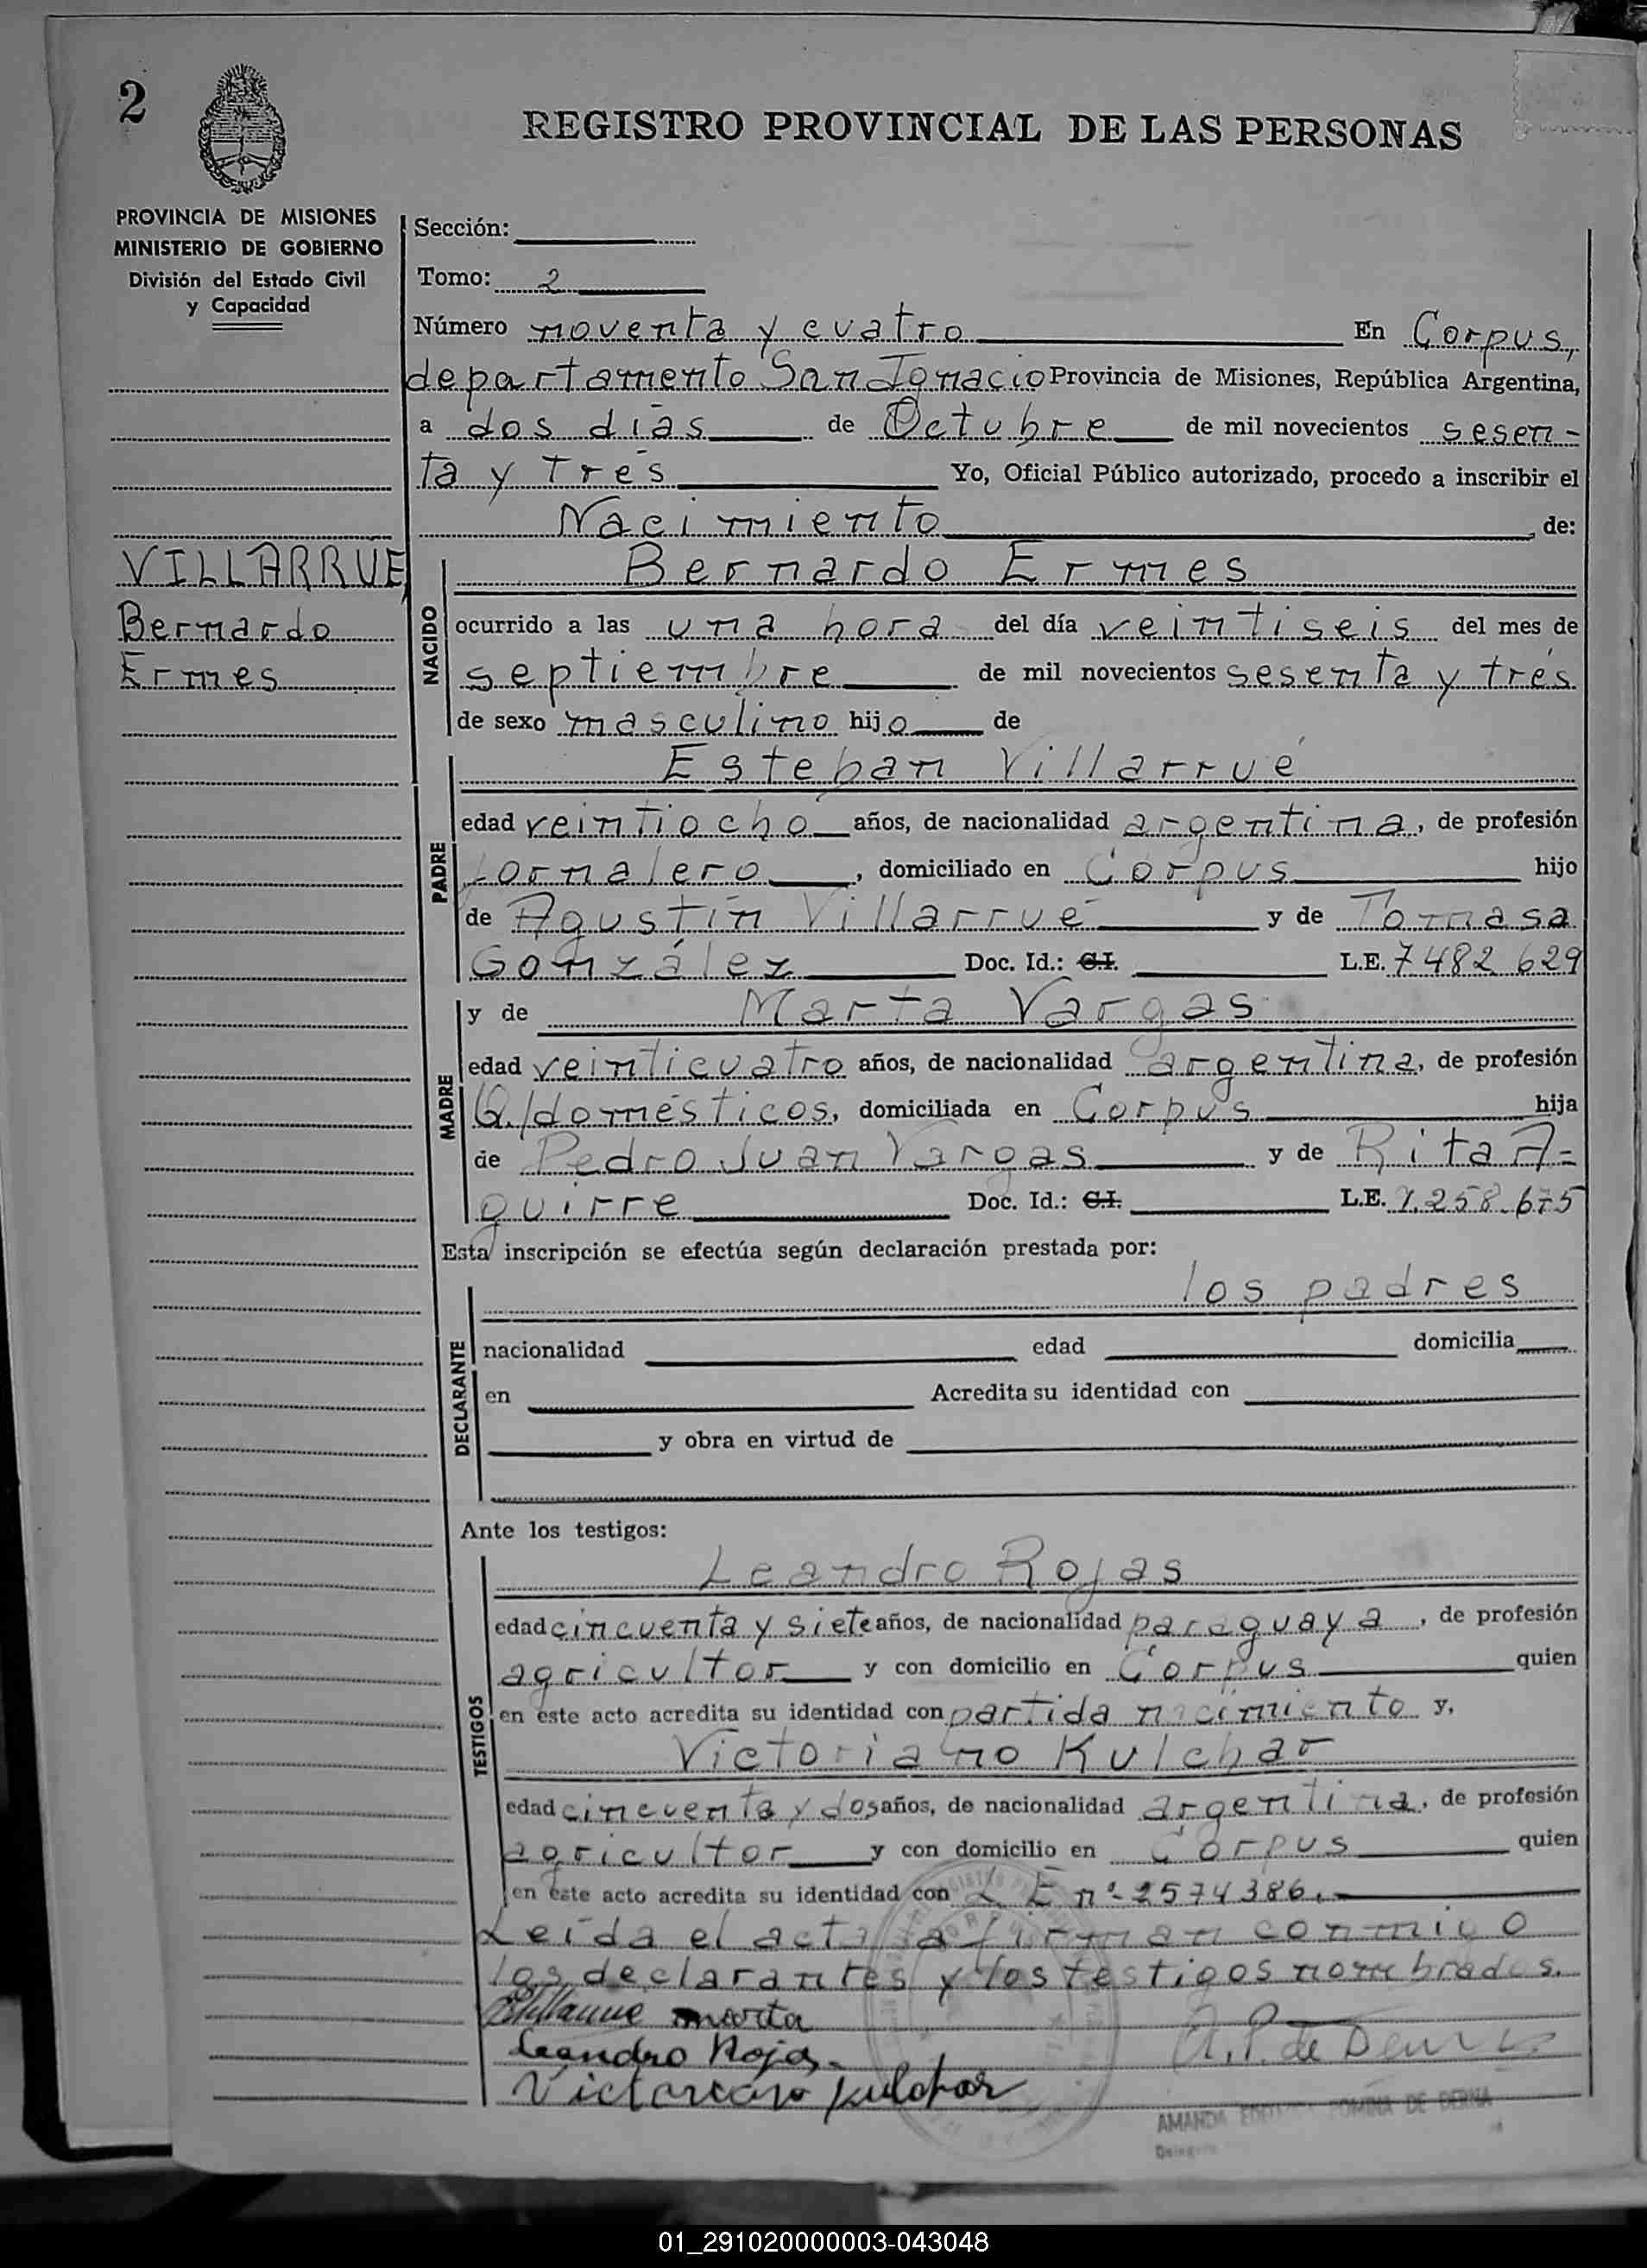 2
REGISTRO PROVINCIAL DE LAS PERSONAS
PROVINCIA DE MISIONES
MINISTERIO DE GOBIERNO
División del Estado Civil
y Capacidad
VILLARRUE,
Bernardo
Ermes
Sección:
Tomo: 2
Número noventa y cuatro En Corpus,
departamento San Ignacio Provincia de Misiones, República Argentina,
a dos días de Octubre de mil novecientos sesen-
ta y tres Yo, Oficial Público autorizado, procedo a inscribir el
Nacimiento, de:
NACIDO
Bernardo Ermes
ocurrido a las una hora del día veintiseis del mes de
septiembre de mil novecientos sesenta y trés
de sexo masculino hijo de
PADRE
Esteban Villarrué
edad veintiocho años, de nacionalidad argentina, de profesión
Jornalero, domiciliado en Corpus hijo
de Agustín Villarrué y de Tomasa
González Doc. Id.: C.I. L.E. 7482629
MADRE
y de Marta Vargas
edad veinticuatro años, de nacionalidad argentina, de profesión
Q./domésticos, domiciliada en Corpus hija
de Pedro Juan Vargas y de Rita A=
guirre Doc. Id.: C.I. L.E. 1.258.675
Esta inscripción se efectúa según declaración prestada por:
DECLARANTE
los padres
nacionalidad edad domicilia
en Acredita su identidad con
y obra en virtud de
Ante los testigos:
TESTIGOS
Leandro Rojas
edad cincuenta y siete años, de nacionalidad paraguaya, de profesión
agricultor y con domicilio en Corpus quien
en este acto acredita su identidad con partida nacimiento y,
Victoriano Kulchar
edad cincuenta y dos años, de nacionalidad argentina, de profesión
agricultor y con domicilio en Corpus quien
en este acto acredita su identidad con L E nº 2574386.-
Leída el acta la firman conmigo
los declarantes y los testigos nombrados.
marta
Leandro Rojas.
Victoriano Kulchar
A. P. de
AMANDA DE DERNA
01_291020000003-043048